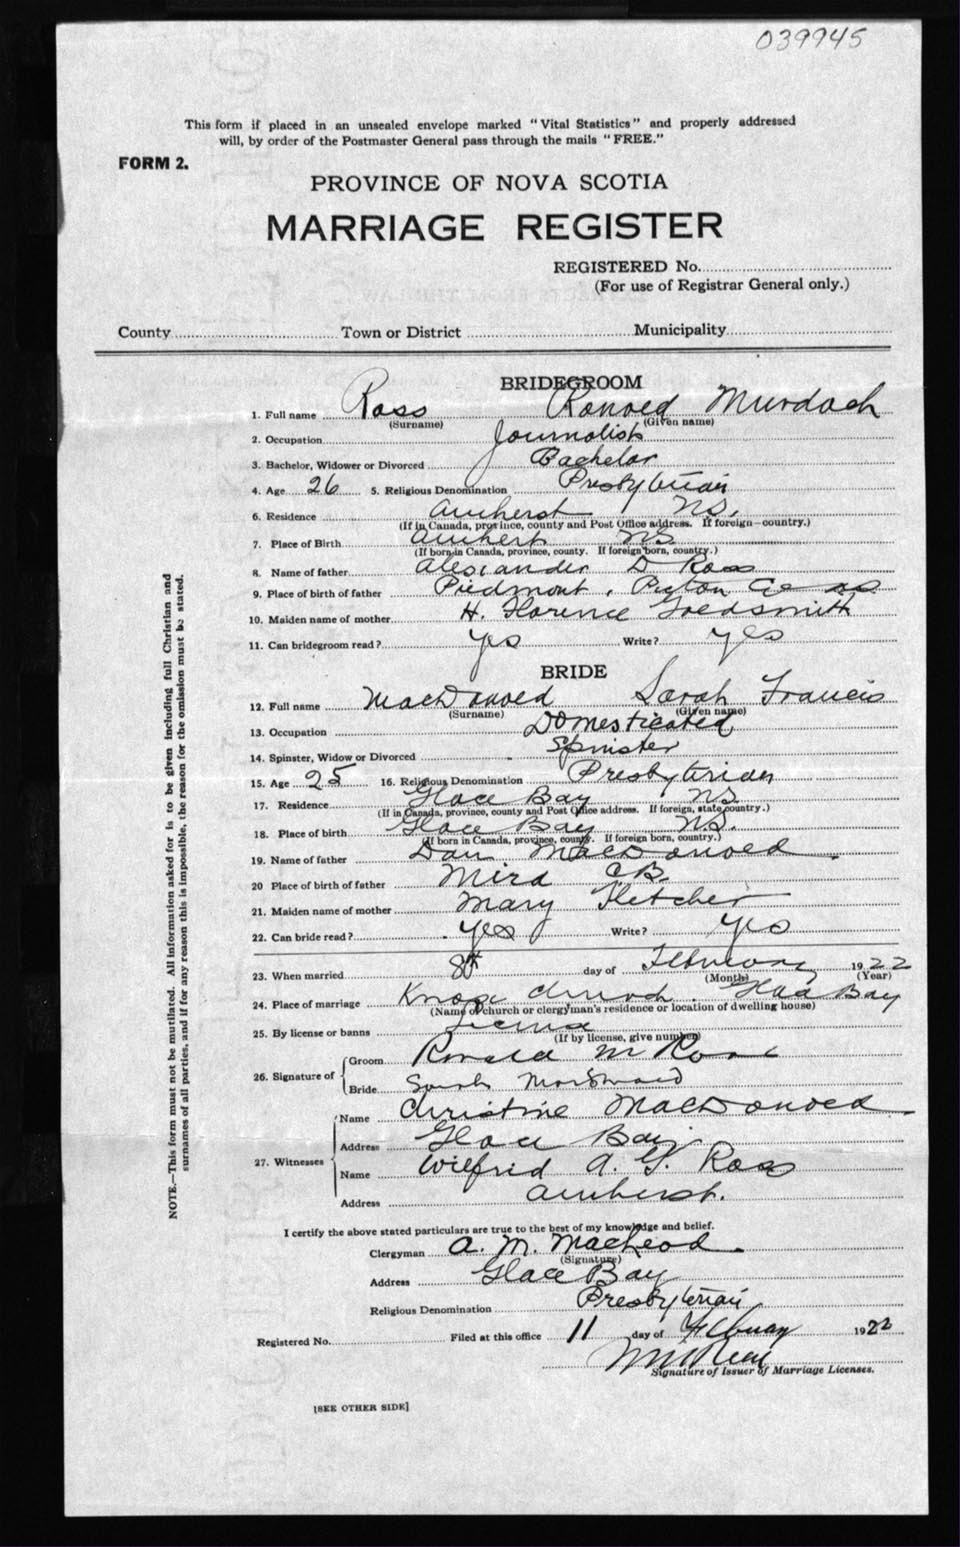 039945
This form if placed in an unsealed envelope marked "Vital Statistics" and properly addressed
will, by order of the Postmaster General pass through the mails "FREE."
FORM 2.
PROVINCE OF NOVA SCOTIA
MARRIAGE REGISTER
REGISTERED No.
(For use of Registrar General only.)
County Town or District Municipality
BRIDEGROOM
1. Full name Ross Ronald Murdoch
(Surname) (Given name)
2. Occupation Journalist
3. Bachelor, Widower or Divorced Bachelor
4. Age 26 5. Religious Denomination Presbyterian
6. Residence Amherst N.S.
(If in Canada, province, county and Post Office address. If foreign—country.)
7. Place of Birth Amherst NS
(If born in Canada, province, county. If foreign born, country.)
8. Name of father Alexander D Ross
9. Place of birth of father Piedmont, Pictou Co NS
10. Maiden name of mother H. Florence Goldsmith
11. Can bridegroom read? yes Write? yes
BRIDE
12. Full name MacDonald Sarah Francis
(Surname) (Given name)
13. Occupation Domesticated
14. Spinster, Widow or Divorced Spinster
15. Age 25 16. Religious Denomination Presbyterian
17. Residence Glace Bay NS
(If in Canada, province, county and Post Office address. If foreign, state country.)
18. Place of birth Glace Bay N.S.
(If born in Canada, province, county. If foreign born, country.)
19. Name of father Dan MacDonald.
20 Place of birth of father Mira CB.
21. Maiden name of mother Mary Fletcher
22. Can bride read? yes Write? yes
23. When married 8th day of February 1922
(Month) (Year)
24. Place of marriage Knox Church. Glace Bay
(Name of church or clergyman's residence or location of dwelling house)
25. By license or banns License
(If by license, give number)
26. Signature of Groom Ronald M Ross
Bride Sarah MacDonald
27. Witnesses Name Christine MacDonald
Address Glace Bay
Name Wilfrid A. G. Ross
Address Amherst.
I certify the above stated particulars are true to the best of my knowledge and belief.
Clergyman A. M. MacLeod.
(Signature)
Address Glace Bay
Religious Denomination Presbyterian
Registered No. Filed at this office 11 day of February 1922
Signature of Issuer of Marriage Licenses.
[SEE OTHER SIDE]
NOTE.—This form must not be mutilated. All information asked for is to be given including full Christian and
surnames of all parties, and if for any reason this is impossible, the reason for the omission must be stated.